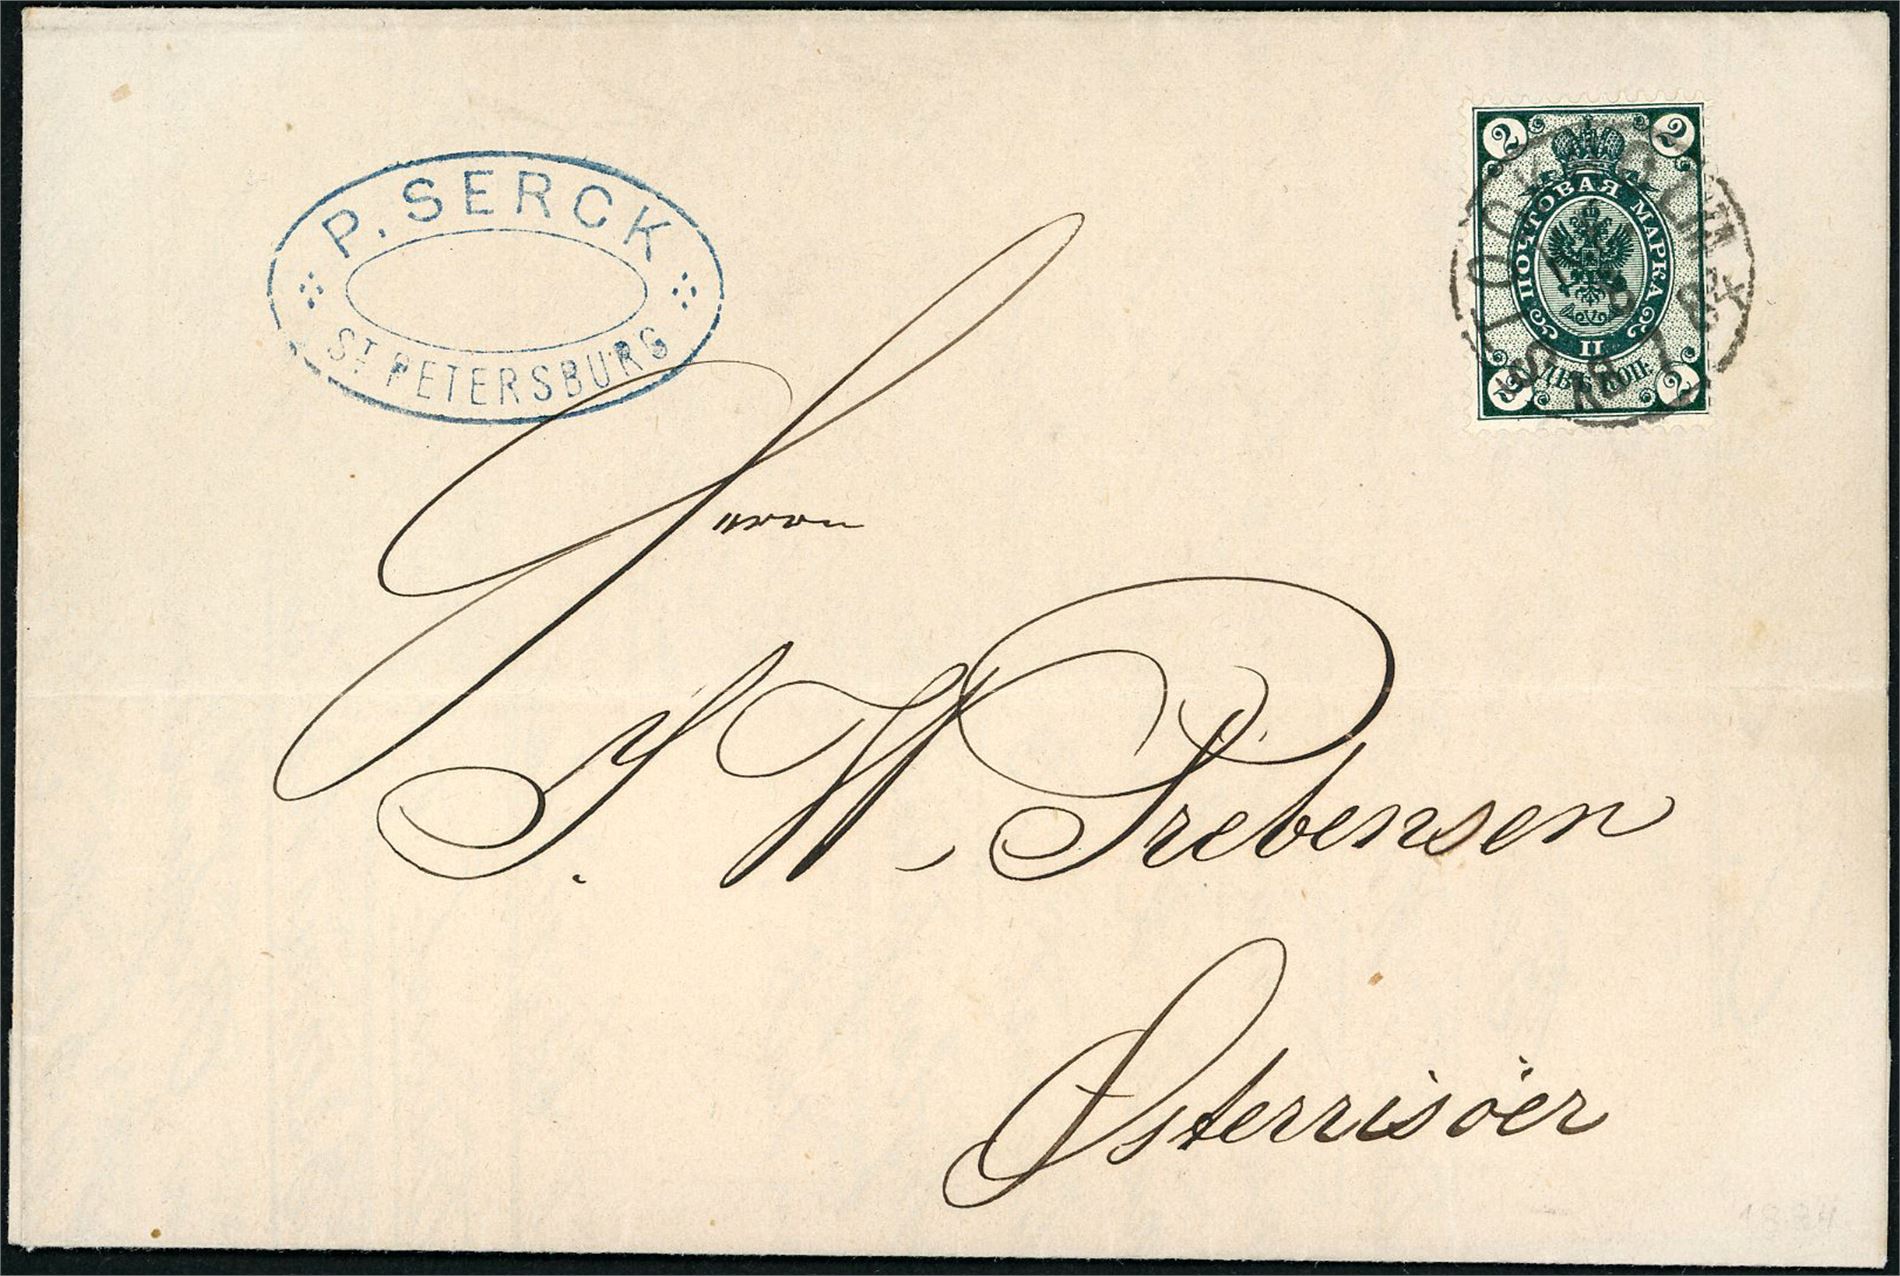 P. SERCK
ST. PETERSBURG
2 2
ПОЧТОВАЯ МАРКА
II
ДВѢ КОП.
2 2
STOCKHOLM
Herrn
J. W. Prebensen
Österrisöer